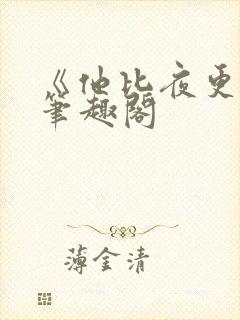 《他比夜更
笔趣阁
薄金清